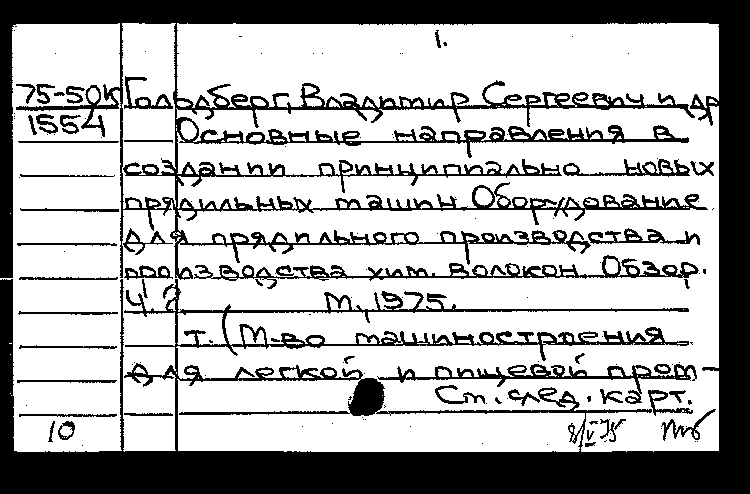 1.
75-50К Гольдберг, Владимир Сергеевич и др
1554 Основные направления в
создании принципиально новых
прядильных машин. Оборудование
для прядильного производства и
производства хим. волокон. Обзор.
Ч.2. М., 1975.
т. (М-во машиностроения
для легкой и пищевой пром-
См. след. карт.
10 8/V 75